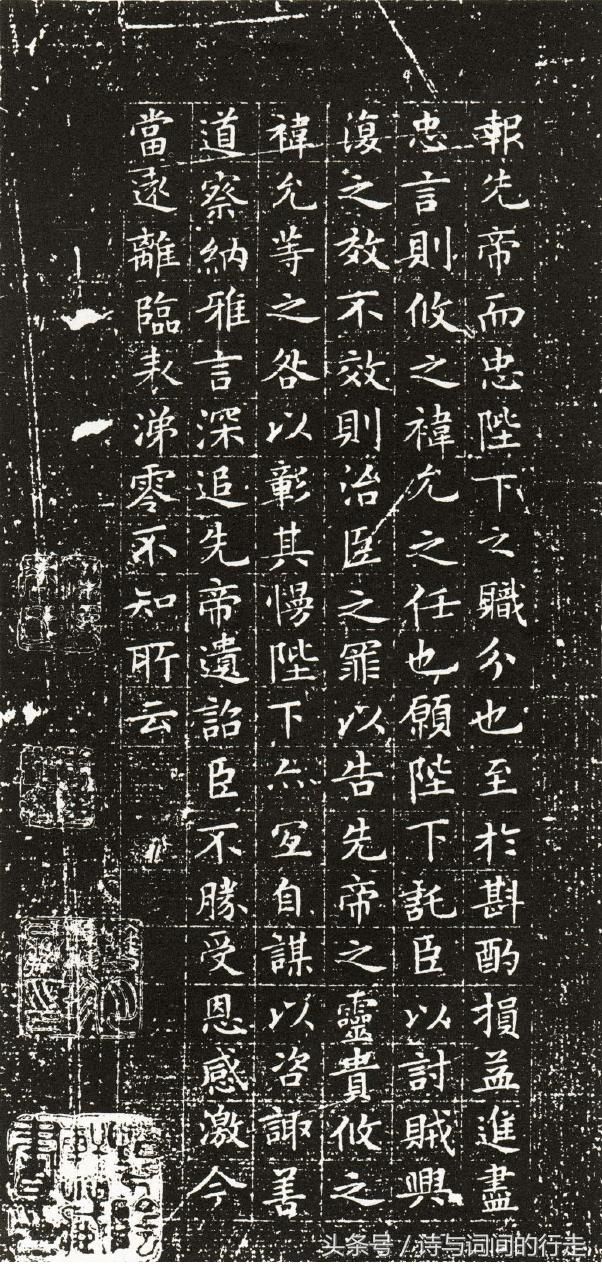 報先帝而忠陛下之職分也至於斟酌損益進盡
忠言則攸之禕允之任也願陛下託臣以討賊興
復之效不效則治臣之罪以告先帝之靈責攸之
禕允等之咎以彰其慢陛下亦宜自謀以咨諏善
道察納雅言深追先帝遺詔臣不勝受恩感激今
當遠離臨表涕零不知所云
头条号 / 诗与词间的行走